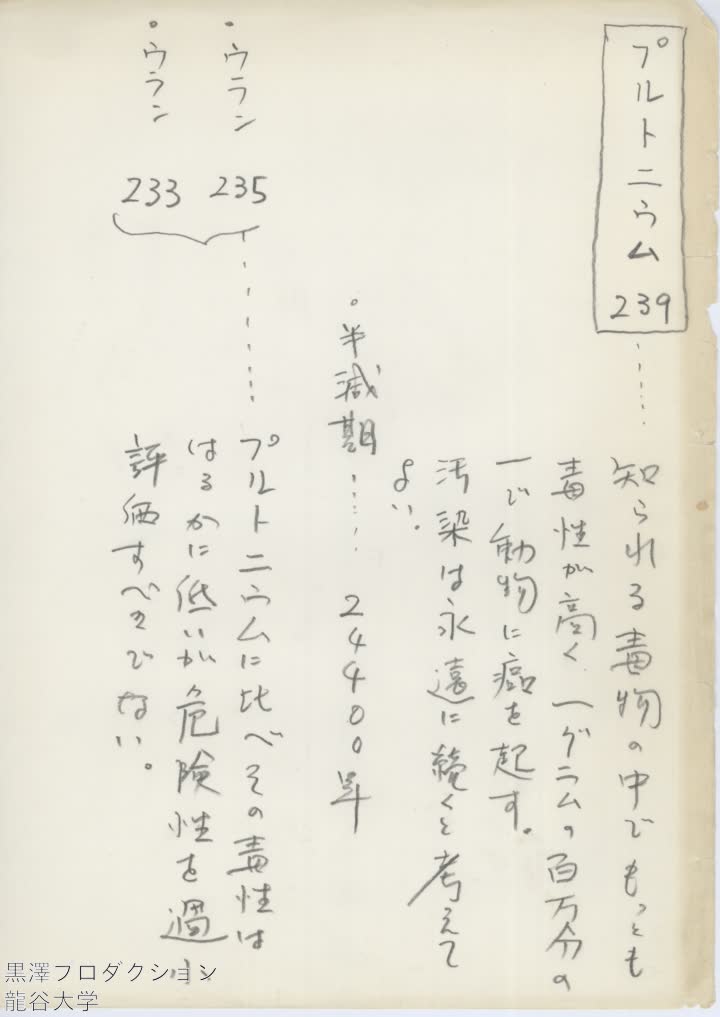 プルトニウム239……
知られる毒物の中でもっとも
毒性が高く一グラムの百万分の
一で動物に癌を起す。
汚染は永遠に続くと考えて
よい。
・半減期…… 24400年
・ウラン 235
・ウラン 233
………プルトニウムに比べその毒性は
はるかに低いが危険性を過小
評価すべきでない。
黒澤プロダクション
龍谷大学